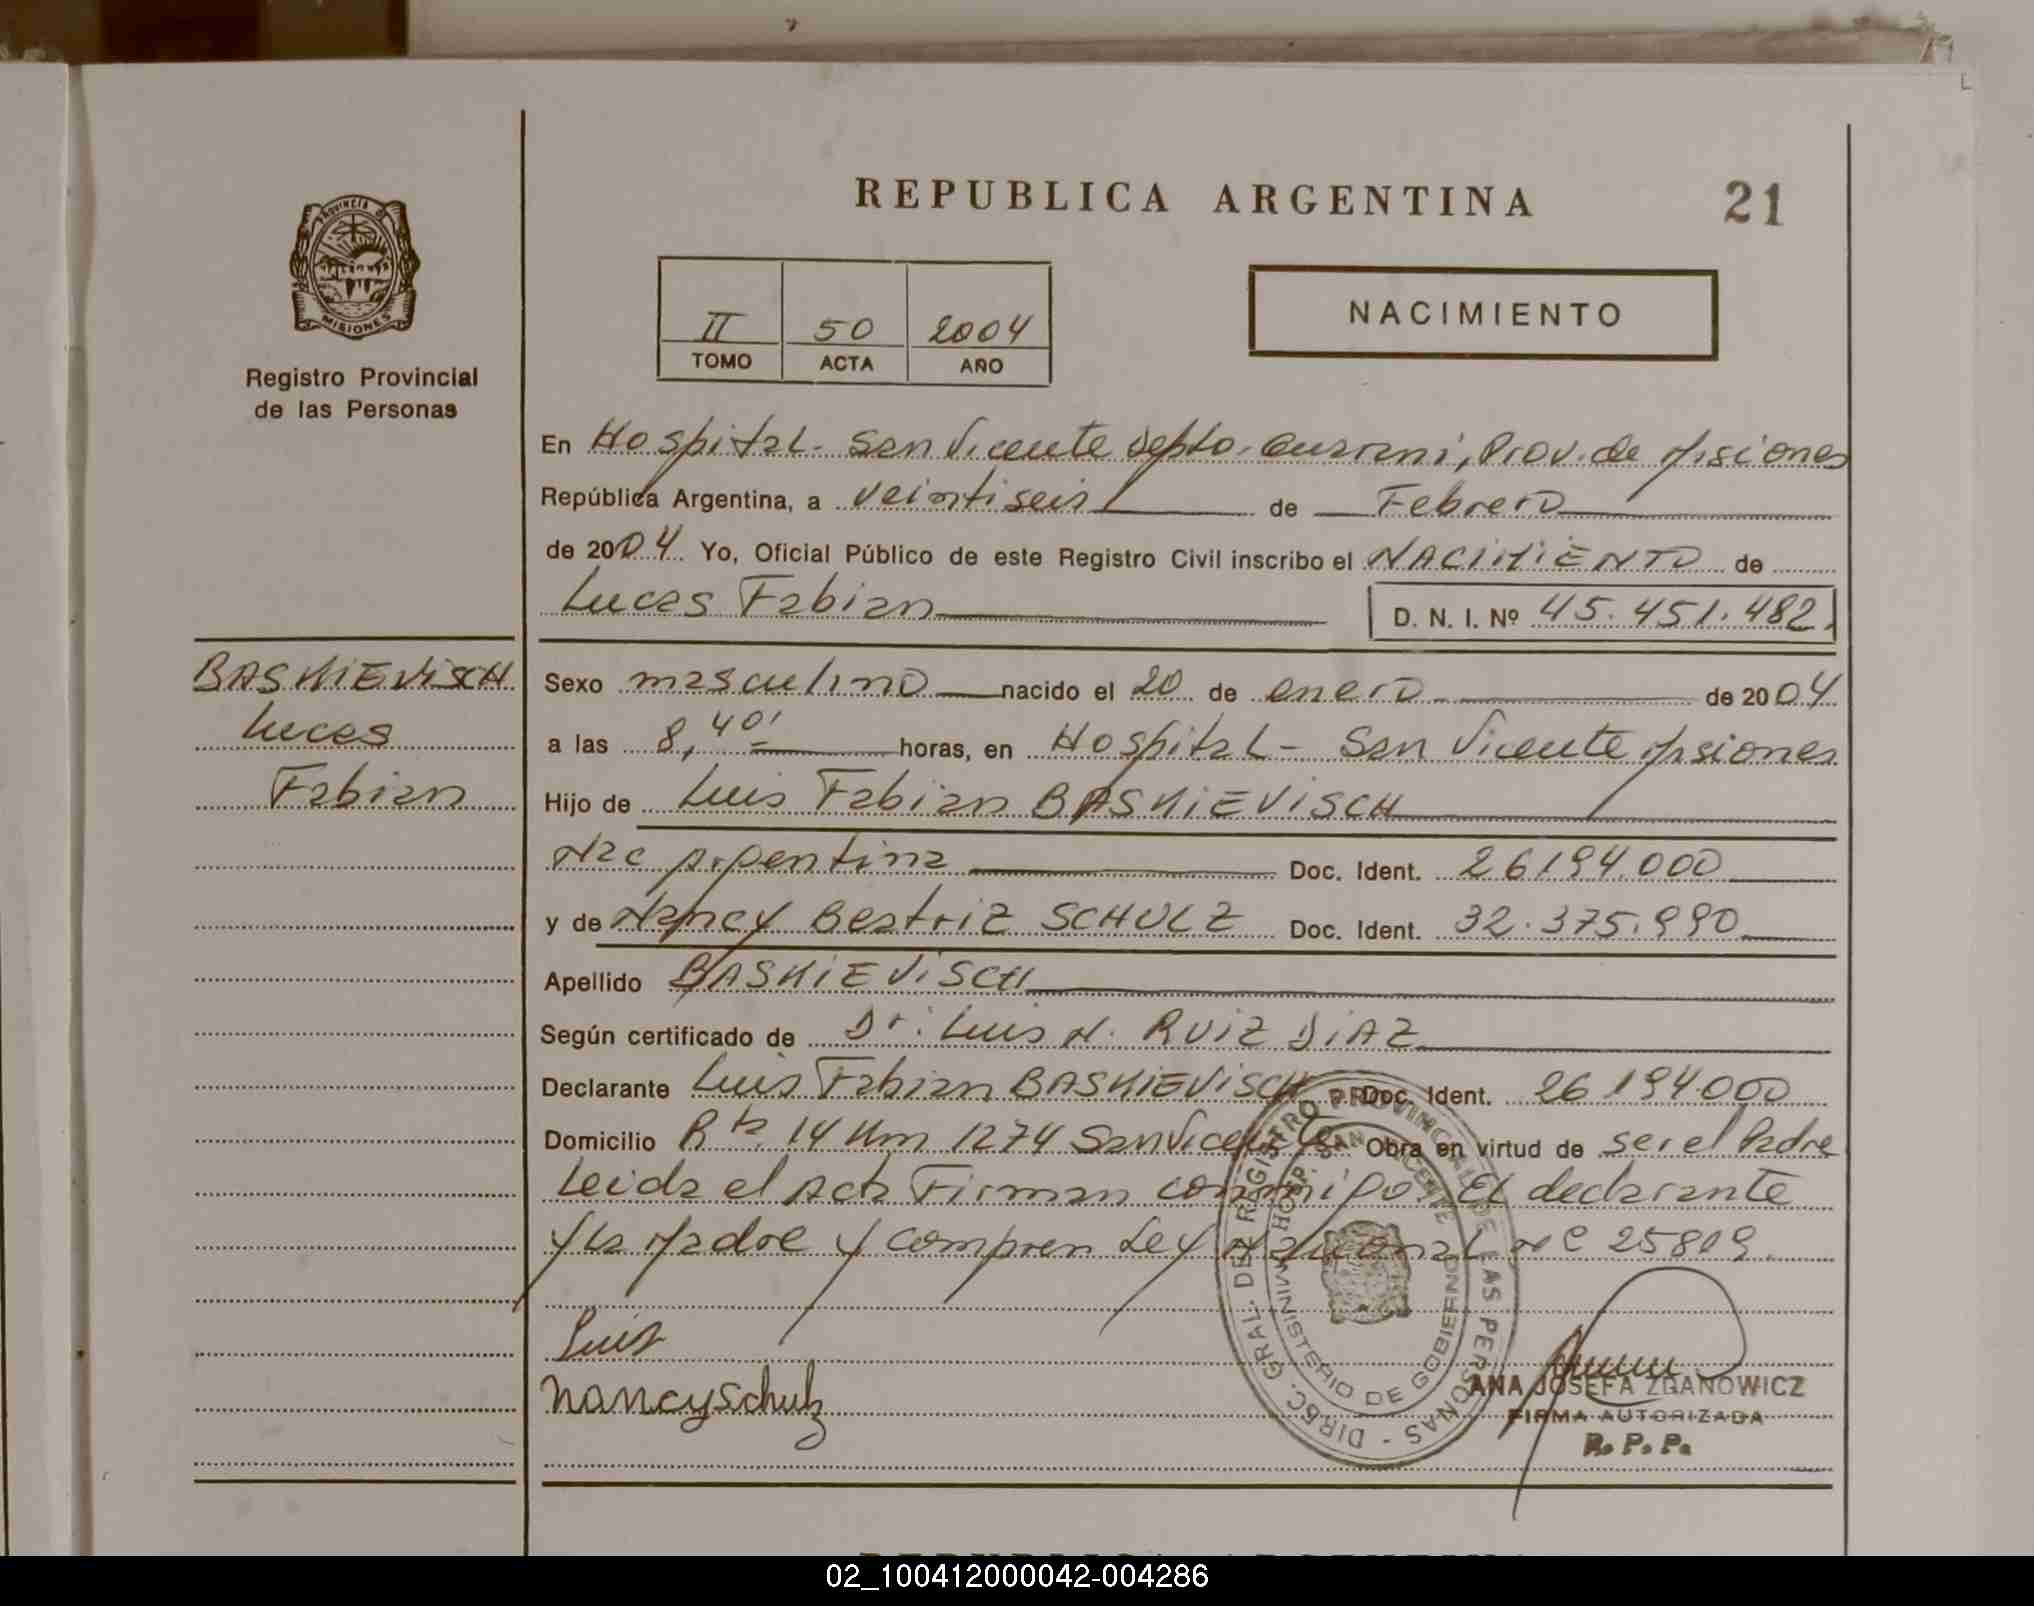 REPUBLICA ARGENTINA
21
PROVINCIA DE
MISIONES
Registro Provincial
de las Personas
II
50
2004
TOMO
ACTA
AÑO
NACIMIENTO
En Hospital - San Vicente Depto. Guarani, Prov. de Misiones
República Argentina, a veintiseis de Febrero
de 2004 Yo, Oficial Público de este Registro Civil inscribo el NACIMIENTO de
Lucas Fabian
D. N. I. Nº 45.451.482.
BASKIEVISCH
Lucas
Fabian
Sexo masculino nacido el 20 de enero de 2004
a las 8,40' horas, en Hospital - San Vicente Misiones
Hijo de Luis Fabian BASKIEVISCH
Nac Argentina Doc. Ident. 26194.000
y de Nancy Beatriz SCHULZ Doc. Ident. 32.375.990
Apellido BASKIEVISCH
Según certificado de Dr. Luis N. RUIZ DIAZ
Declarante Luis Fabian BASKIEVISCH Doc. Ident. 26194.000
Domicilio Rta. 14 Km 1274 San Vicente Obra en virtud de ser el Padre
Leida el Acta Firman conmigo El declarante
y la Madre y Compren Ley Nacional Nº 25809.
DIREC. GRAL. DEL RAGISTRO PROVINCIAL DE LAS PERSONAS -
HOSP. SAN VICENTE
MINISTERIO DE GOBIERNO
Luis
nancy schulz
ANA JOSEFA ZDANOWICZ
FIRMA AUTORIZADA
R. P. P.
02_100412000042-004286